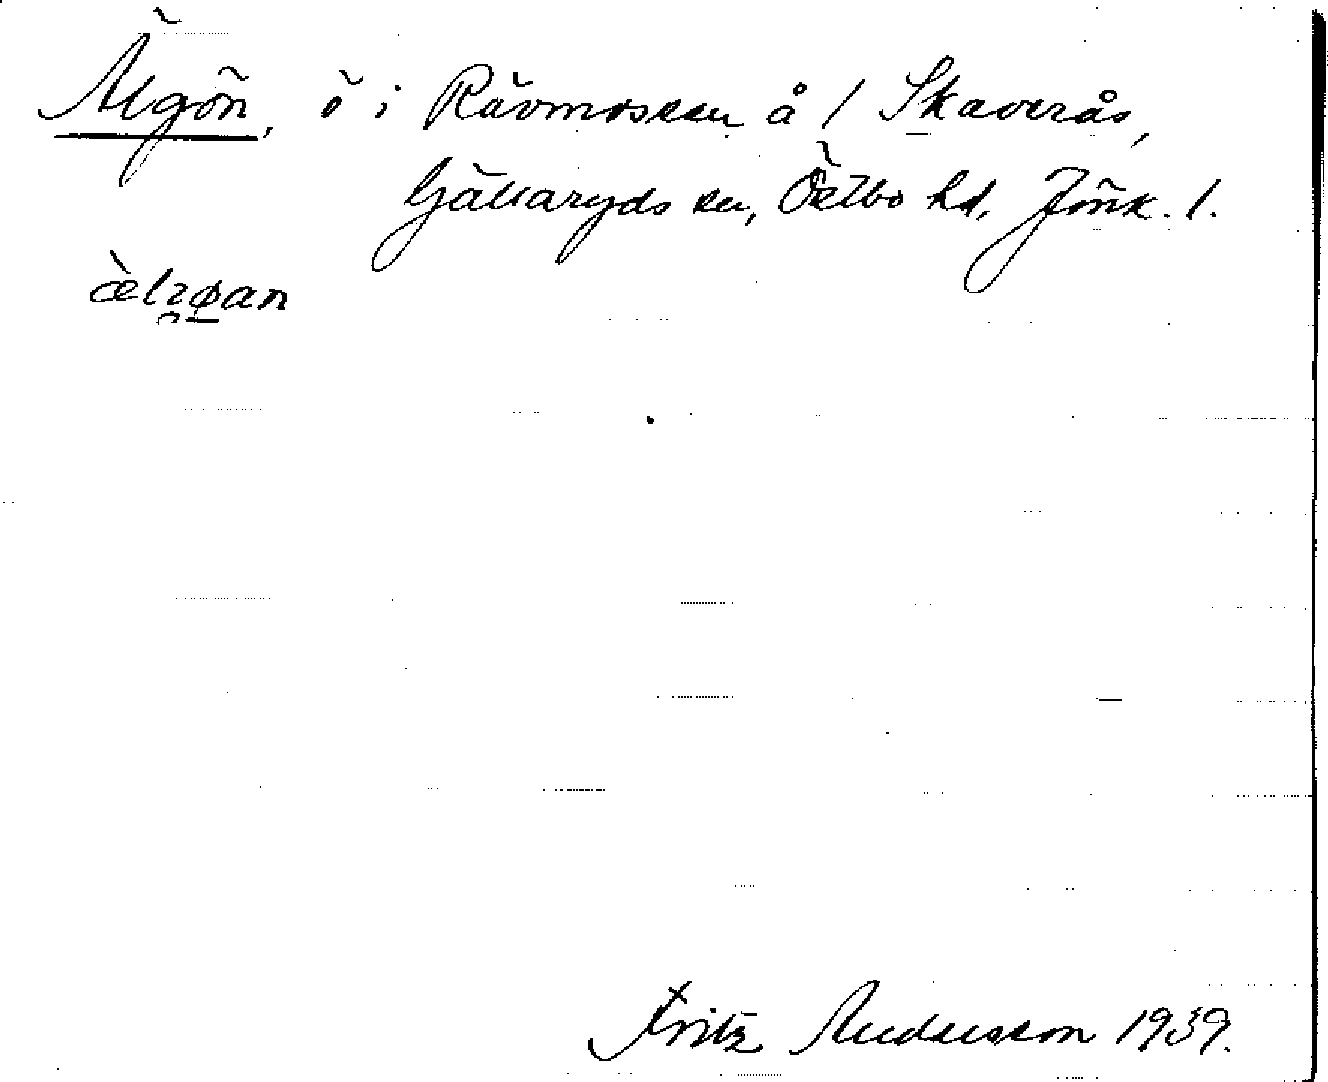 Älgön, ö i Rävmossen å / Skaverås,
Gällaryds sn, Östbo hd, Jönk. l.
Fritz Andersson 1939.